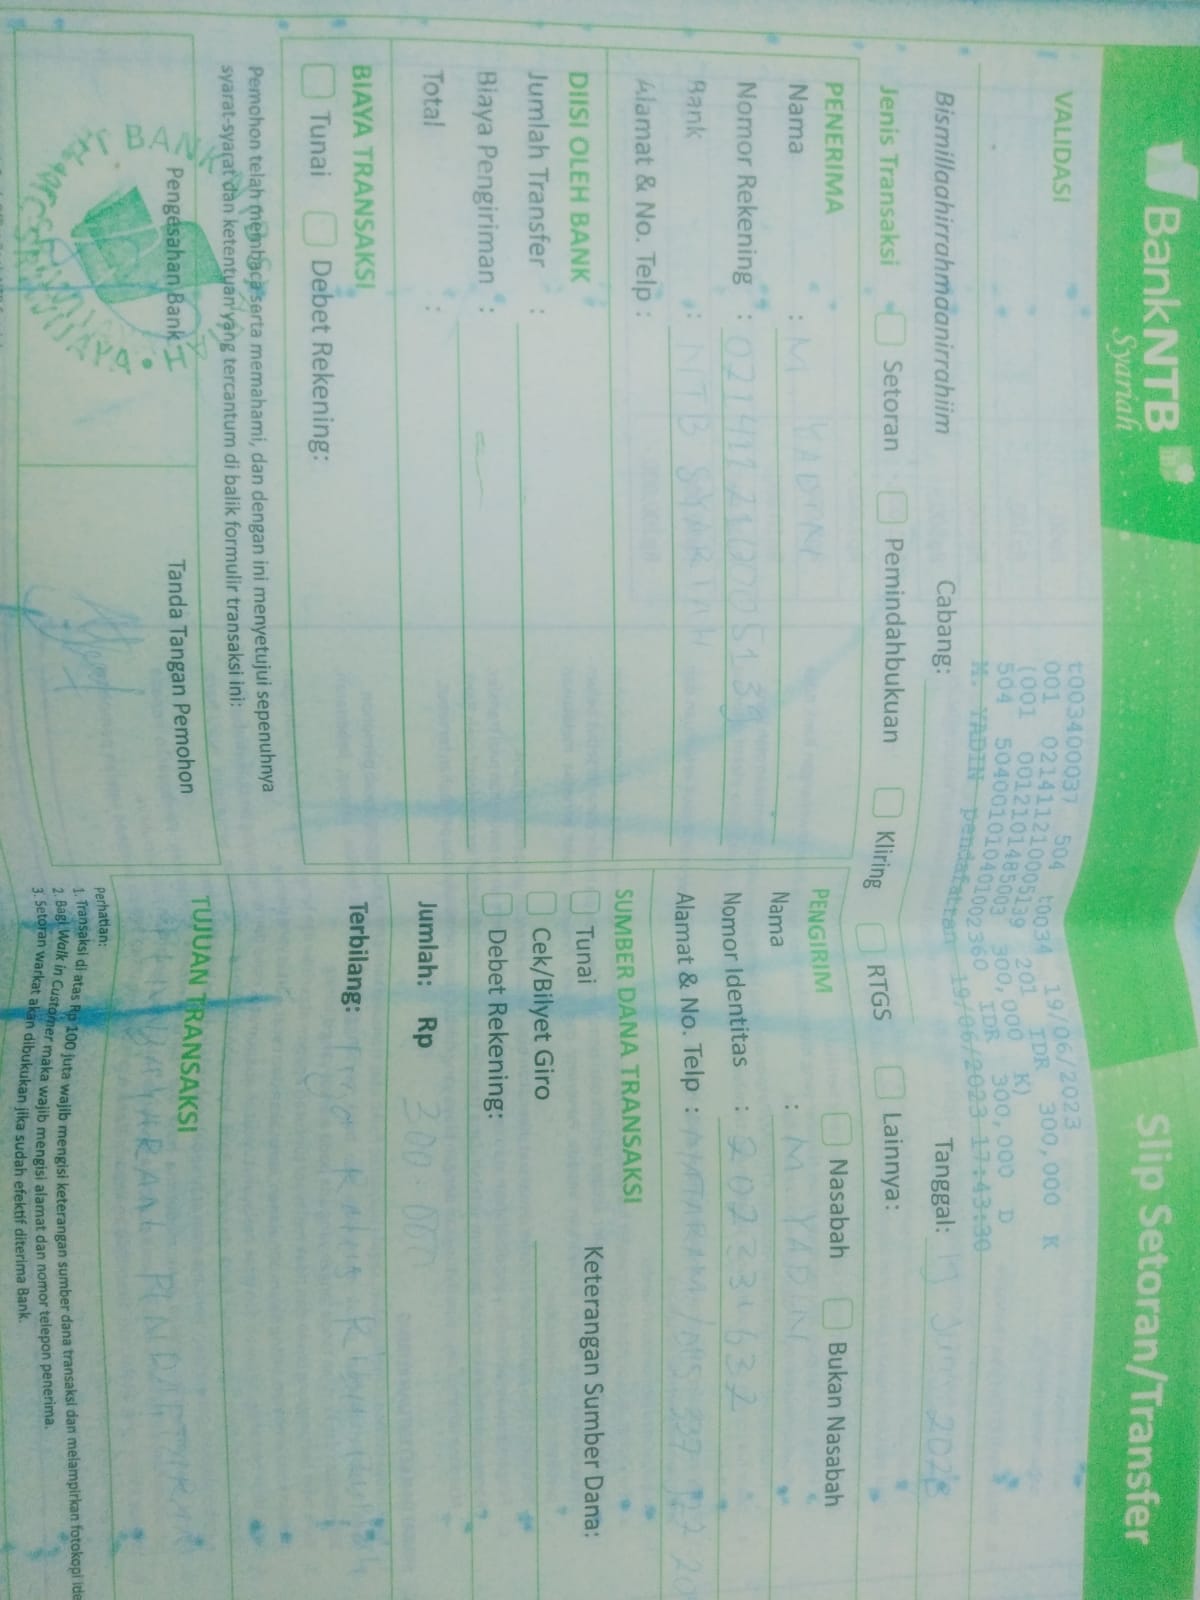 BankNTB
Syariah
Slip Setoran/Transfer
VALIDASI
t003400037 504 t0034 19/06/2023
001 021411210005139 201 IDR 300,000 K
(001 0012101485003 300,000 K)
504 504001010401002360 IDR 300,000 D
M. YADIN pendafattan 19/06/2023 17:43:30
Bismillaahirrahmaanirrahiim
Cabang:
Tanggal: 19 Juni 2023
Jenis Transaksi
Setoran
Pemindahbukuan
Kliring
RTGS
Lainnya:
PENERIMA
Nama : M. YADIN
Nomor Rekening : 021411210005139
Bank : NTB SYARIAH
Alamat & No. Telp :
DIISI OLEH BANK
Jumlah Transfer :
Biaya Pengiriman :
Total :
BIAYA TRANSAKSI
Tunai
Debet Rekening:
Pemohon telah membaca serta memahami, dan dengan ini menyetujui sepenuhnya
syarat-syarat dan ketentuan yang tercantum di balik formulir transaksi ini:
Pengesahan Bank
Tanda Tangan Pemohon
PENGIRIM
Nasabah
Bukan Nasabah
Nama : M. YADIN
Nomor Identitas :
Alamat & No. Telp : MATARAM/
SUMBER DANA TRANSAKSI
Tunai
Keterangan Sumber Dana:
Cek/Bilyet Giro
Debet Rekening:
Jumlah: Rp 300.000
Terbilang: Tiga Ratus Ribu Rupiah
TUJUAN TRANSAKSI
Perhatian:
1. Transaksi di atas Rp 100 juta wajib mengisi keterangan sumber dana transaksi dan melampirkan fotokopi ide
2. Bagi Walk in Customer maka wajib mengisi alamat dan nomor telepon penerima.
3. Setoran warkat akan dibukukan jika sudah efektif diterima Bank.